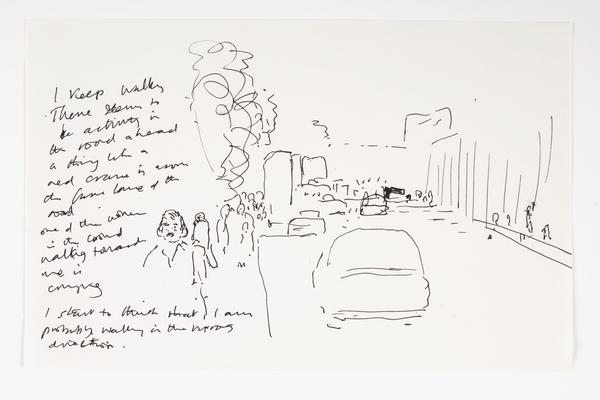 I keep walking
There seem to
be activity in
the road ahead
a thing like a
red crane is across
the four lane of the
road
one of the women
in the crowd
walking toward
me is
crying
I start to think that I am
probably walking in the wrong
direction.